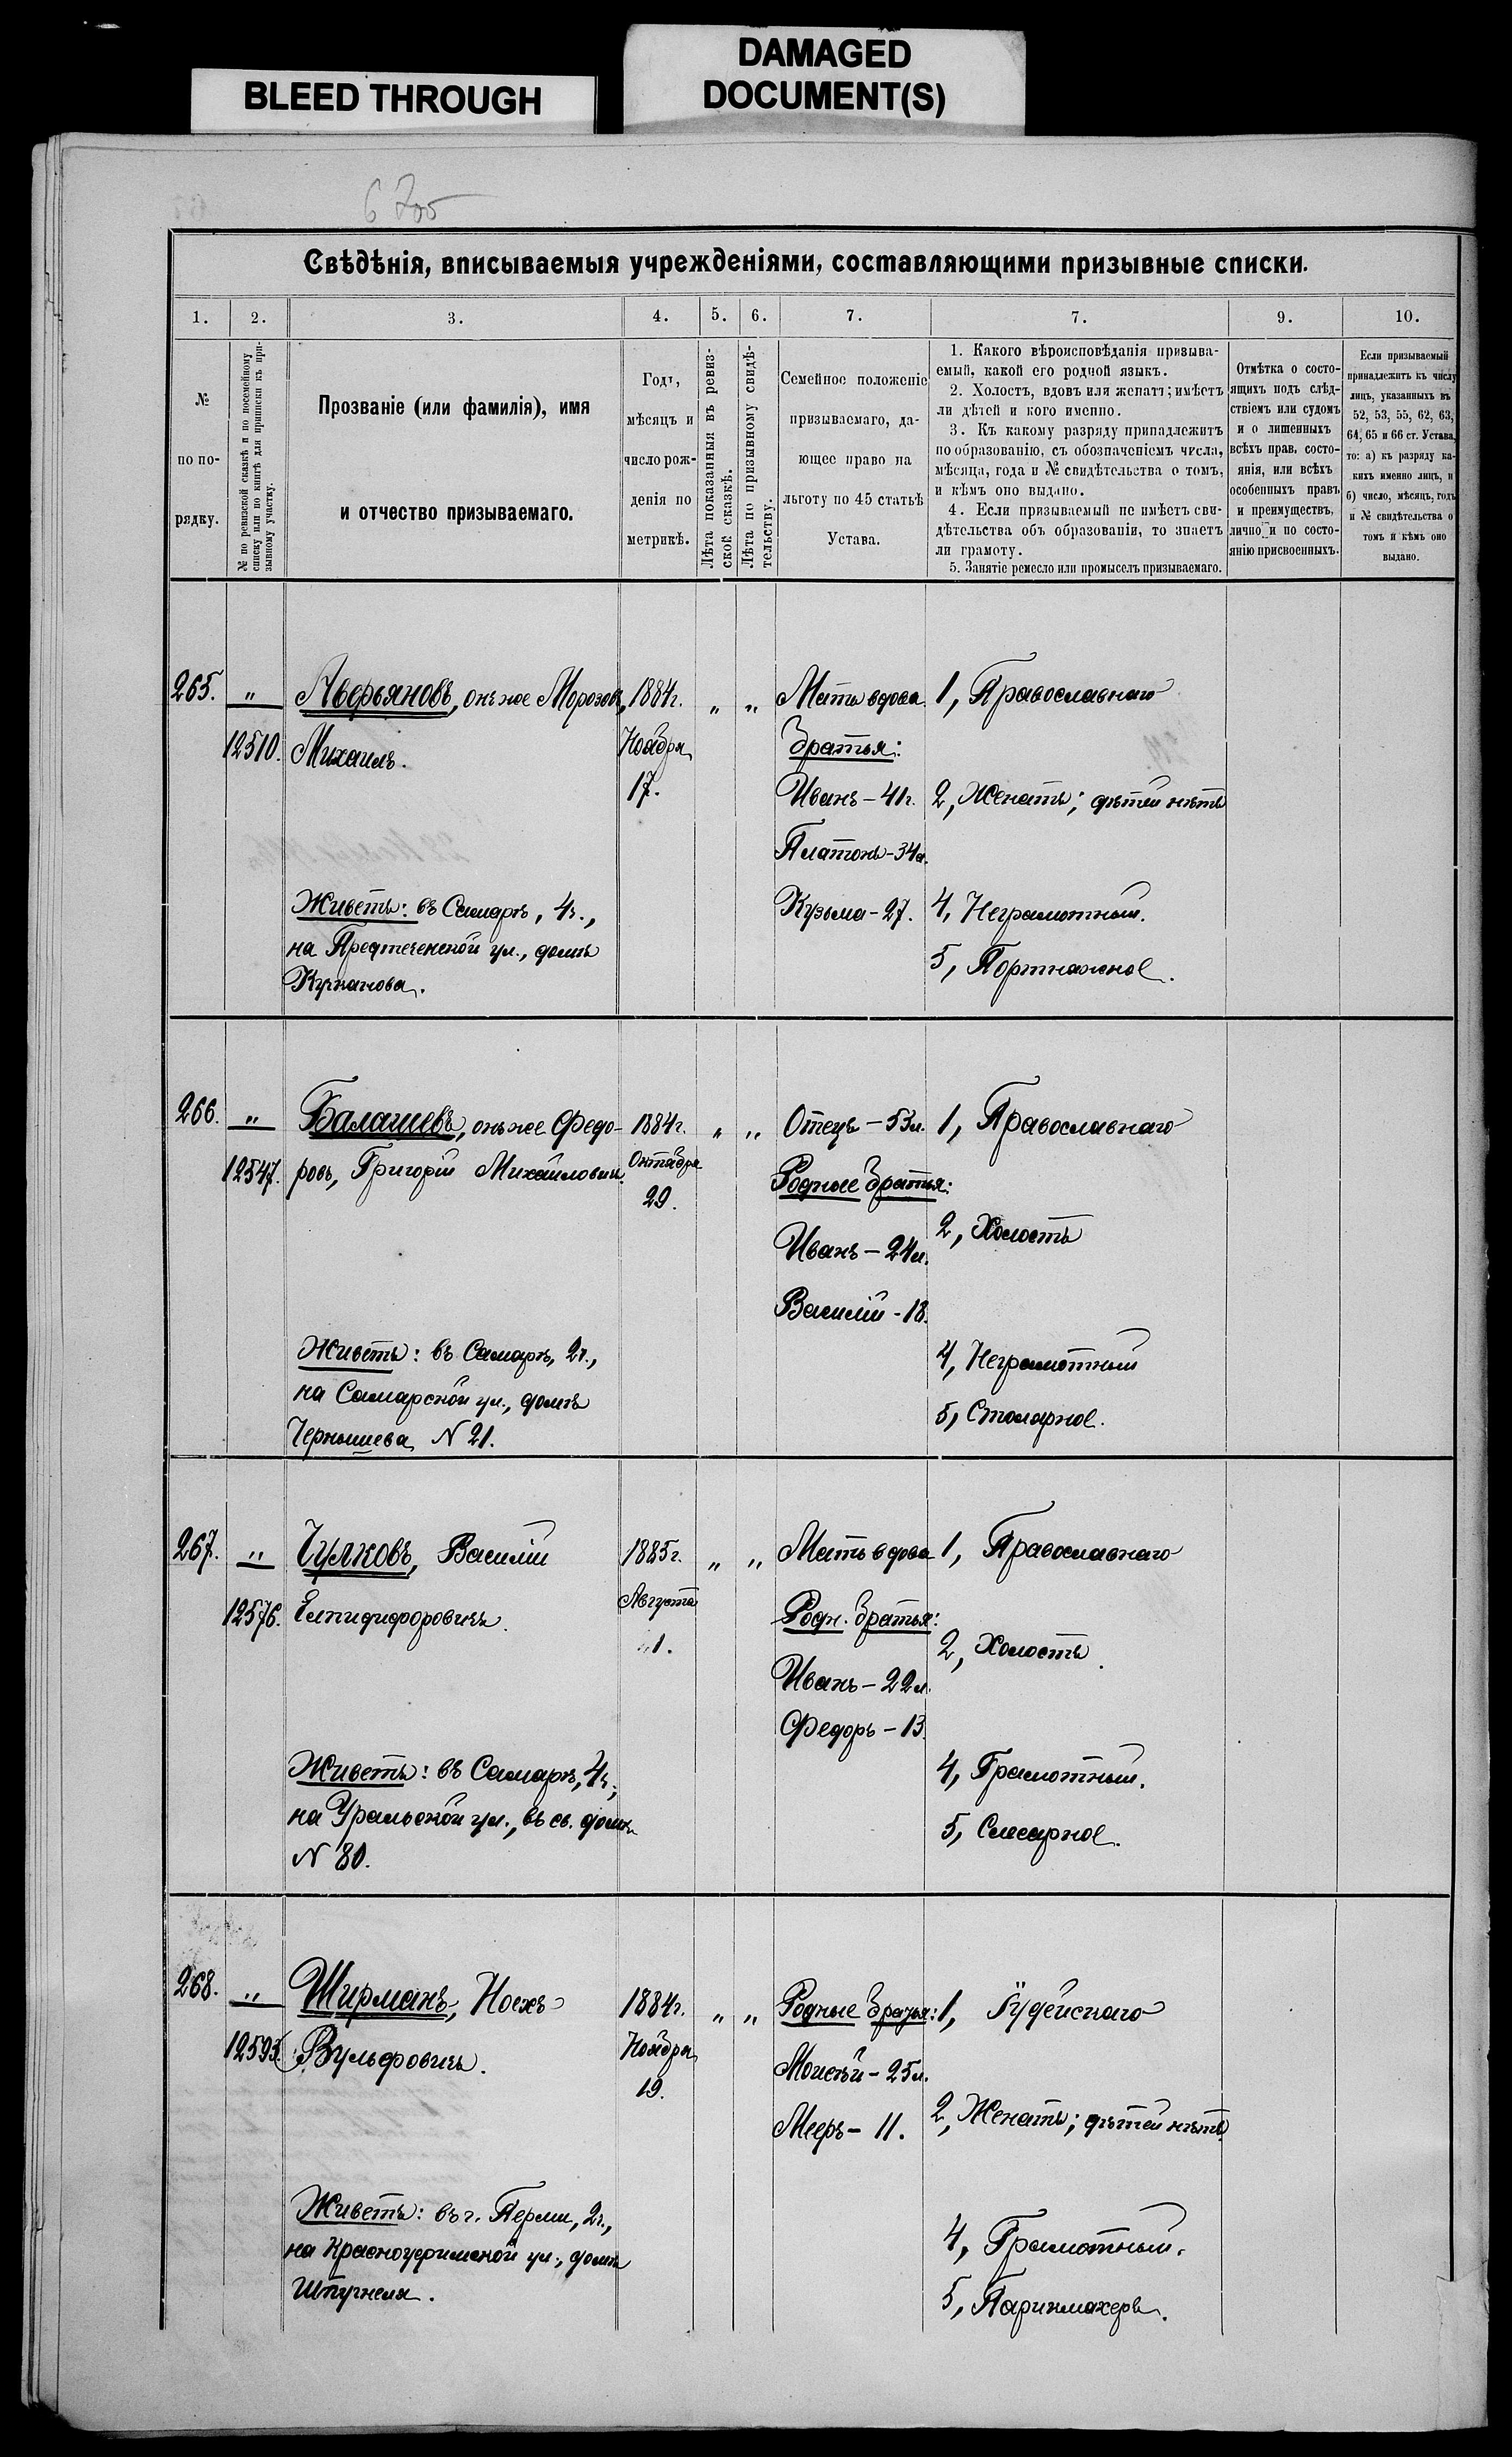 BLEED THROUGH
DAMAGED
DOCUMENT(S)
Свѣдѣнія, вписываемыя учрежденіями, составляющими призывные списки.
1. 2. 3. 4. 5. 6. 7. 7. 9. 10.
№
по по-
рядку.
№ по ревизской сказкѣ и по посемейному
списку или по книгѣ для приписки къ при-
зывному участку.
Прозваніе (или фамилія), имя
и отчество призываемаго.
Годъ,
мѣсяцъ и
число рож-
денія по
метрикѣ.
Лѣта показанныя въ ревиз-
ской сказкѣ.
Лѣта по призывному свидѣ-
тельству.
Семейное положеніе
призываемаго, да-
ющее право на
льготу по 45 статьѣ
Устава.
1. Какого вѣроисповѣданія призыва-
емый, какой его родной языкъ.
2. Холостъ, вдовъ или женатъ; имѣетъ
ли дѣтей и кого именно.
3. Къ какому разряду принадлежитъ
по образованію, съ обозначеніемъ числа,
мѣсяца, года и № свидѣтельства о томъ,
и кѣмъ оно выдано.
4. Если призываемый не имѣетъ сви-
дѣтельства объ образованіи, то знаетъ
ли грамоту.
5. Занятіе ремесло или промыселъ призываемаго.
Отмѣтка о состо-
ящихъ подъ слѣд-
ствіемъ или судомъ
и о лишенныхъ
всѣхъ прав. состо-
янія, или всѣхъ
особенныхъ правъ
и преимуществъ,
лично и по состо-
янію присвоенныхъ.
Если призываемый
принадлежитъ къ числу
лицъ, указанныхъ въ
52, 53, 55, 62, 63,
64, 65 и 66 ст. Устава,
то: а) къ разряду ка-
кихъ именно лицъ, и
б) число, мѣсяцъ, годъ
и № свидѣтельства о
томъ и кѣмъ оно
выдано.
265. " Аверьяновъ, онъ же Морозовъ, 1884г. " " Мать вдова 1, Православнаго
12510. Михаилъ. Ноября Братья:
17. Иванъ - 41г. 2, Женатъ; дѣтей нѣтъ
Платонъ - 34л.
Живетъ: въ Самарѣ, 4ч., Кузьма - 27. 4, Неграмотный.
на Предтеченской ул., домъ 5, Портняжное.
266. " Балашевъ, онъ же Федо- 1884г. " " Отецъ - 53л. 1, Православнаго
12547. ровъ, Григорій Михайловичъ. Октября Родные братья:
29.
Иванъ - 24л. 2, Холостъ
Василій - 18.
Живетъ: въ Самарѣ, 2ч., 4, Неграмотный
на Самарской ул., домъ 5, Столярное.
Чернышева N 21.
267. " Чулковъ, Василій 1885г. " " Мать вдова 1, Православнаго
12576. Елпидифоровичъ. Августа Родн. братья:
1. 2, Холостъ.
Иванъ - 22л.
Федоръ - 13.
Живетъ: въ Самарѣ, 4ч., 4, Грамотный.
на Уральской ул., въ св. домѣ 5, Слесарное.
N 80.
268. " Ширманъ, Ноехъ 1884г. " " Родные братья: 1, Іудейскаго
12593. Вульфовичъ. Ноября Моисѣй - 25л.
19. Мееръ - 11. 2, Женатъ; дѣтей нѣтъ.
Живетъ: въ г. Перми, 2ч., 4, Грамотный.
на Красноуфимской ул., домъ
5, Парикмахеръ.